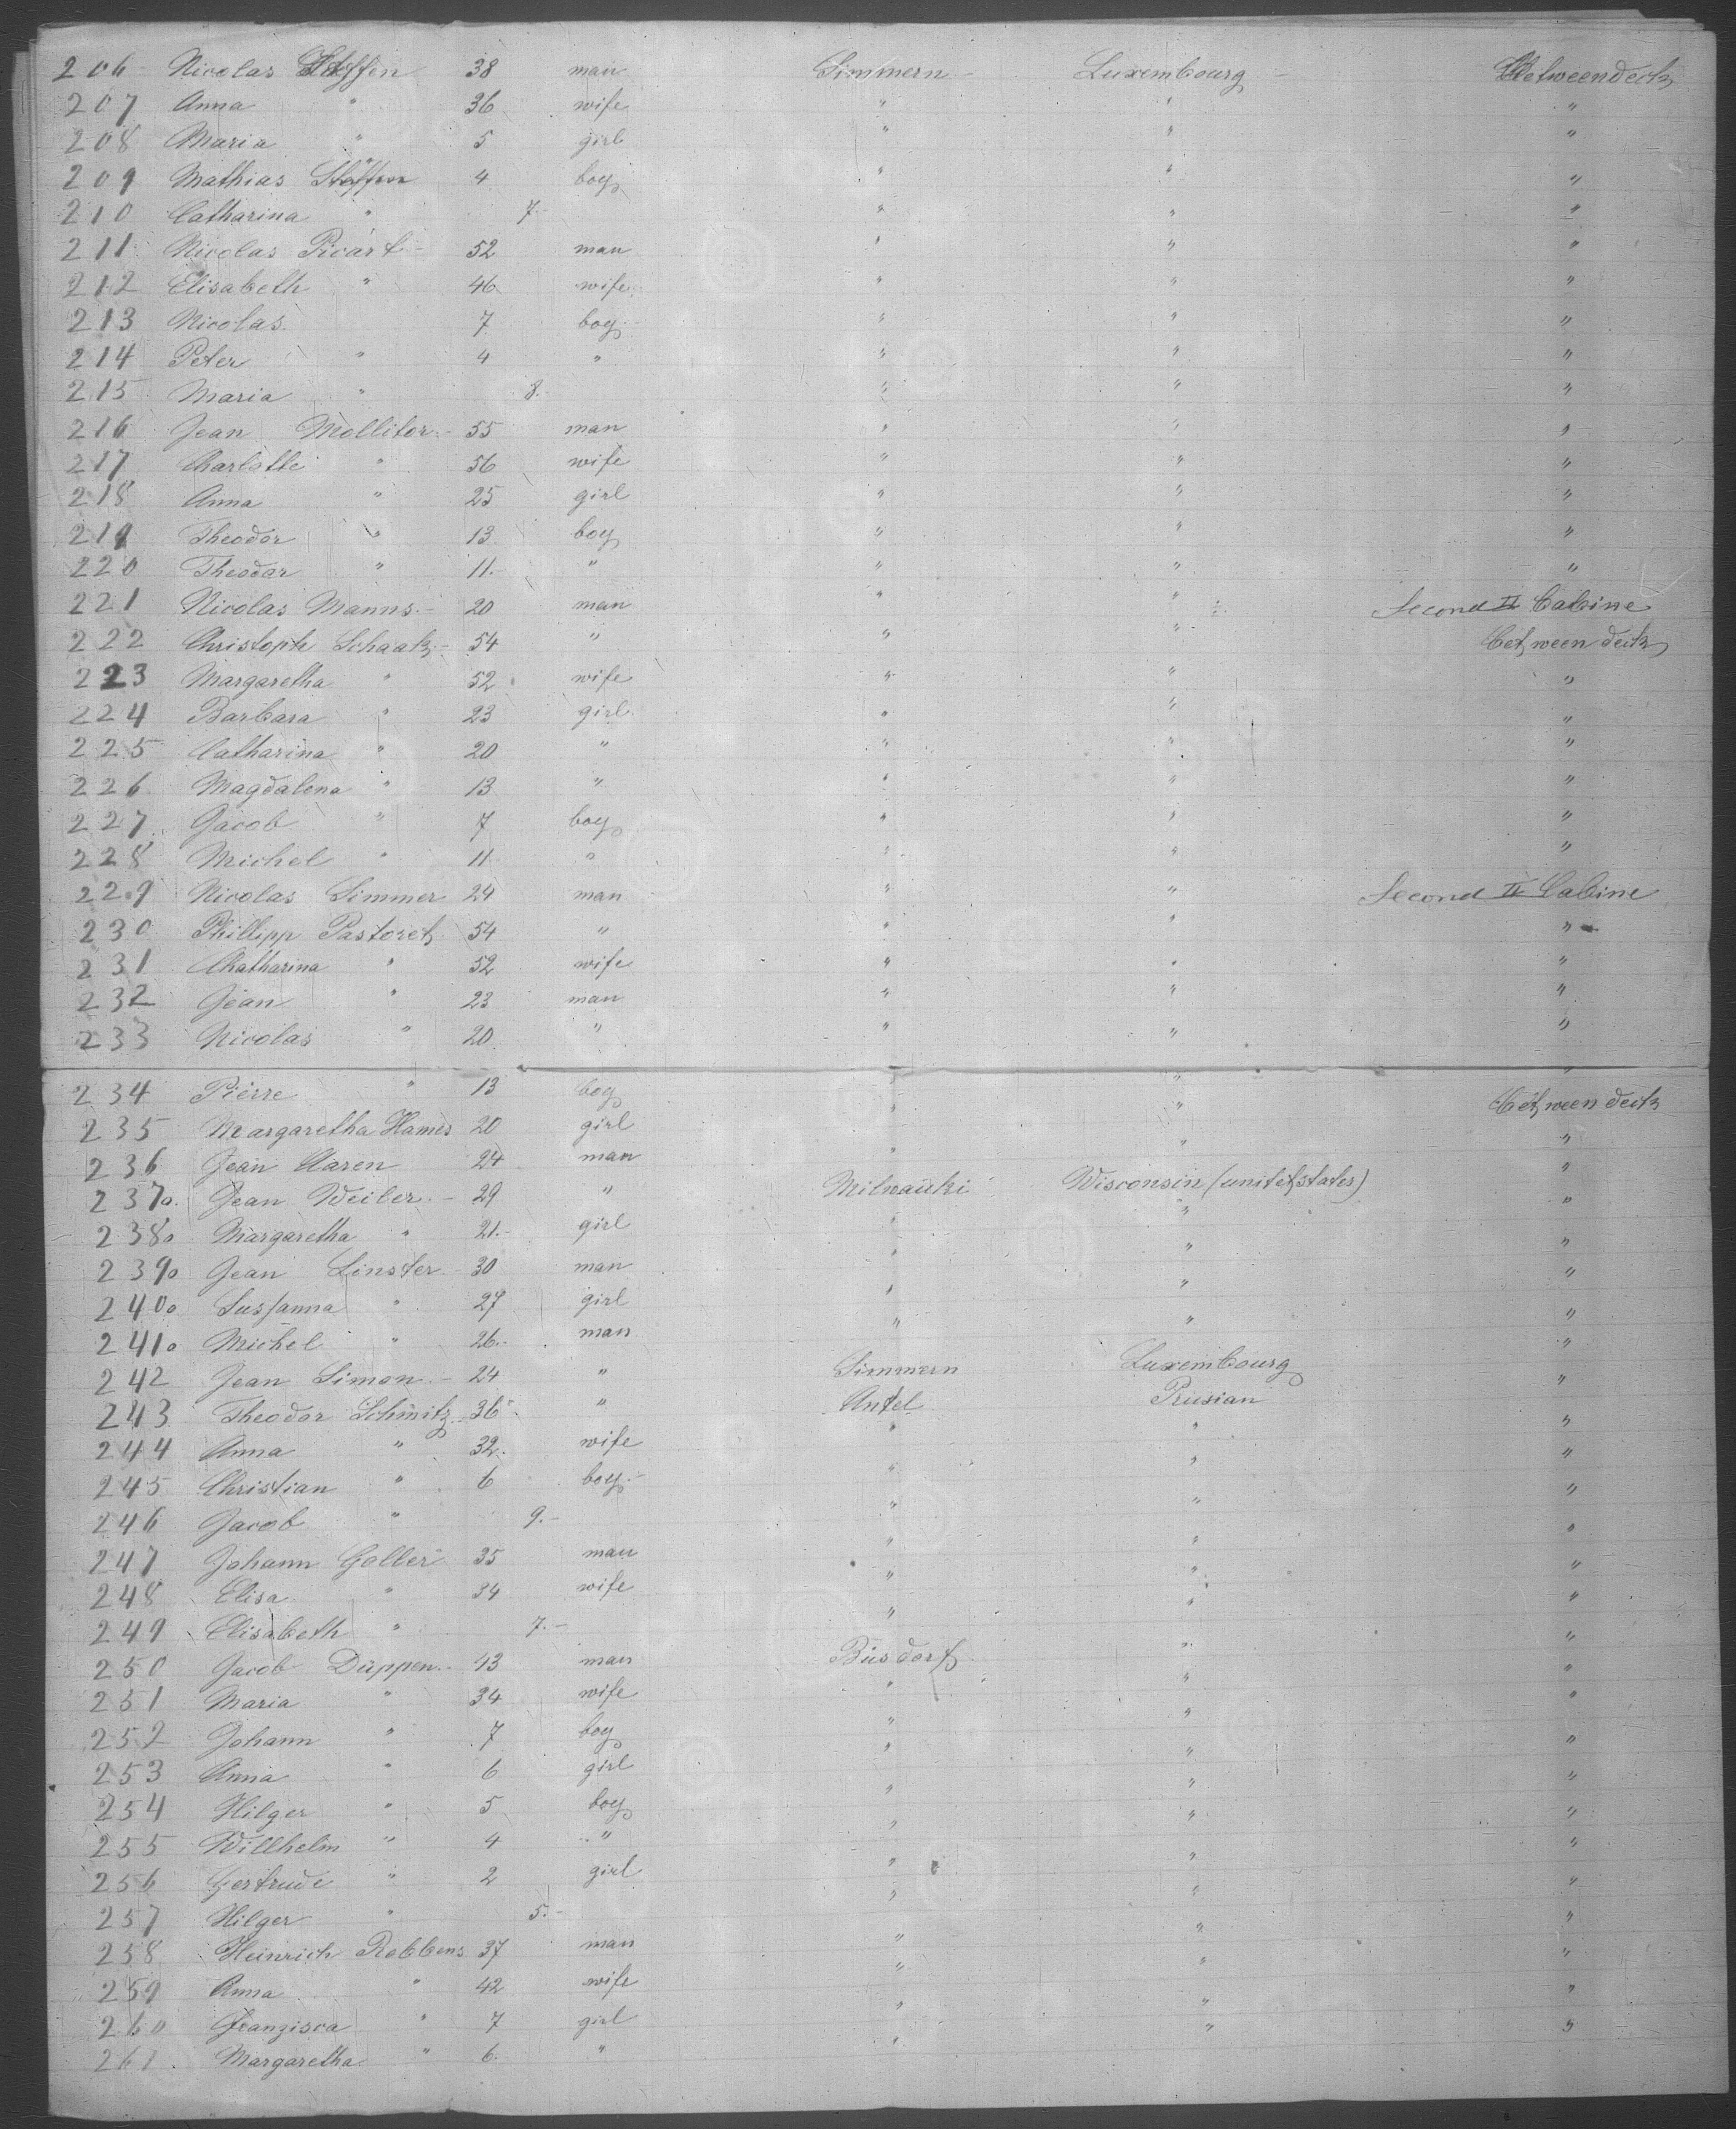 206 Nicolas Steffen 38 man Simmern Luxembourg Betweendeck
207 Anna " 36 wife " " "
208 Maria " 5 girl " " "
209 Mathias Steffen 4 boy " " "
210 Catharina " 7.- " " "
211 Nicolas Picart - 52 man " " "
212 Elisabeth " 46 wife " " "
213 Nicolas 7 boy " " "
214 Peter " 4 " " " "
215 Maria " 8.- " " "
216 Jean Mollitor - 55 man " " "
217 Charlotte " 56 wife " " "
218 Anna " 25 girl " " "
219 Theodor " 13 boy " " "
220 Theodar " 11.- " " " "
221 Nicolas Manns.- 20 man " " Second II Cabine
222 Christoph Schaak - 54 " " " between deck
223 Margaretha " 52 wife " " "
224 Barbara " 23 girl " " "
225 Catharina " 20 " " " "
226 Magdalena " 13 " " " "
227 Jacob " 7 boy " " "
228 Michel " 11 " " " "
229 Nicolas Simmer 24 man " " Second II Cabine
230 Phillipp Pastoret 54 " " " "
231 Chatharina " 52 wife " " "
232 Jean " 23 man " " "
233 Nicolas " 20 " " " "
234 Pierre " 13 boy " " "
235 Margaretha Hames 20 girl " " between deck
236 Jean Claren 24 man " " "
237o. Jean Weiler.- 29 " Milwauki Wisconsin (unitet states) "
238o Margaretha " 21.- girl " " "
239o Jean Linster 30 man " " "
240o Sussanna " 27 girl " " "
241o Michel " 26.- man " " "
242 Jean Simon.- 24 " Simmern Luxembourg "
243 Theodor Schmitz 36 " Antel Prusian "
244 Anna " 32. wife " " "
245 Christian " 6 boy " " "
246 Jacob " 9.- " " "
247 Johann Goller 35 man " " "
248 Elisa " 34 wife " " "
249 Elisabeth " 7.- " " "
250 Jacob Düppen.- 43 man Büsdorf " "
251 Maria " 34 wife " " "
252 Johann " 7 boy " " "
253 Anna " 6 girl " " "
254 Hilger " 5 boy " " "
255 Willhelm " 4 " " " "
256 Gertrude " 2 girl " " "
257 Hilger " 5.- " " "
258 Heinrich Robbens 37 man " " "
259 Anna " 42 wife " " "
260 Franzisca " 7 girl " " "
261. Margaretha " 6. " " " "